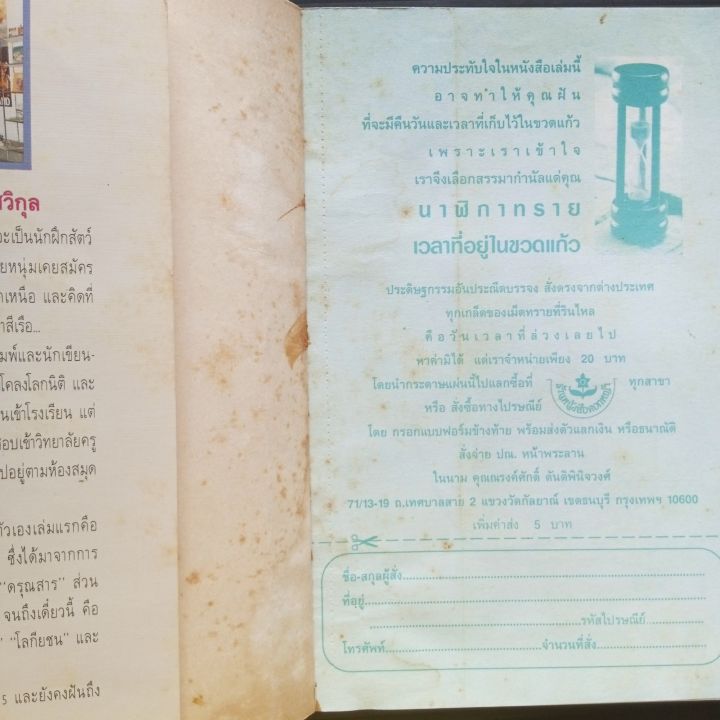 วิกุล
ะเป็นนักฝึกสัตว์
ยหนุ่มเคยสมัคร
าเหนือ และคิดที่
าสีเรือ...
มพ์และนักเขียน-
โคลงโลกนิติ และ
นเข้าโรงเรียน แต่
สอบเข้าวิทยาลัยครู
ปอยู่ตามห้องสมุด
ตัวเองเล่มแรกคือ
ซึ่งได้มาจากการ
"ดรุณสาร" ส่วน
จนถึงเดี๋ยวนี้ คือ
"โลกียชน" และ
5 และยังคงฝันถึง
ความประทับใจในหนังสือเล่มนี้
อาจทำให้คุณฝัน
ที่จะมีคืนวันและเวลาที่เก็บไว้ในขวดแก้ว
เพราะเราเข้าใจ
เราจึงเลือกสรรมากำนัลแด่คุณ
นาฬิกาทราย
เวลาที่อยู่ในขวดแก้ว
ประดิษฐกรรมอันประณีตบรรจง สั่งตรงจากต่างประเทศ
ทุกเกล็ดของเม็ดทรายที่รินไหล
คือวันเวลาที่ล่วงเลยไป
หาค่ามิได้ แต่เราจำหน่ายเพียง 20 บาท
โดยนำกระดาษแผ่นนี้ไปแลกซื้อที่ ร้านหนังสือดอกหญ้า ทุกสาขา
หรือ สั่งซื้อทางไปรษณีย์
โดย กรอกแบบฟอร์มข้างท้าย พร้อมส่งตัวแลกเงิน หรือธนาณัติ
สั่งจ่าย ปณ. หน้าพระลาน
ในนาม คุณณรงค์ศักดิ์ ตันติพินิจวงศ์
71/13-19 ถ.เทศบาลสาย 2 แขวงวัดกัลยาณ์ เขตธนบุรี กรุงเทพฯ 10600
เพิ่มค่าส่ง 5 บาท
ชื่อ-สกุลผู้สั่ง
ที่อยู่
รหัสไปรษณีย์
โทรศัพท์ จำนวนที่สั่ง